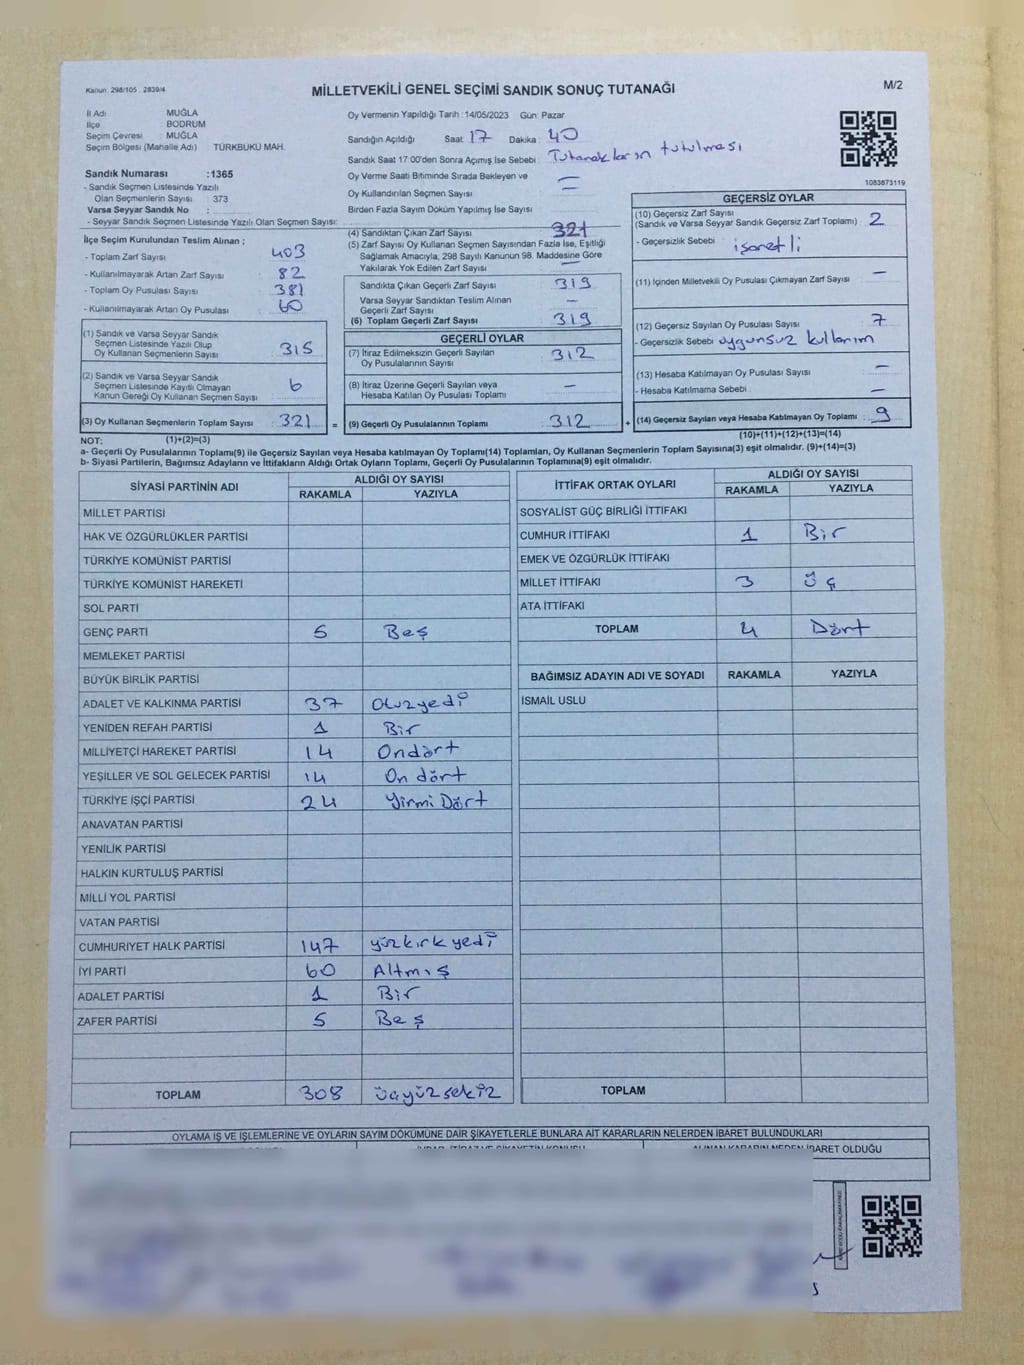 Kanun. 298/105 . 2839/4
MİLLETVEKİLİ GENEL SEÇİMİ SANDIK SONUÇ TUTANAĞI
M/2
İl Adı MUĞLA
İlçe BODRUM
Seçim Çevresi MUĞLA
Seçim Bölgesi (Mahalle Adı) TÜRKBUKU MAH.
Oy Vermenin Yapıldığı Tarih :14/05/2023 Gün: Pazar
Sandığın Açıldığı Saat: 17 Dakika : 40
Sandık Saat 17:00'den Sonra Açımış İse Sebebi : Tutanakların tutulması
Oy Verme Saati Bitiminde Sırada Bekleyen ve
Oy Kullandırılan Seçmen Sayısı —
Birden Fazla Sayım Döküm Yapılmış İse Sayısı :
1083873119
Sandık Numarası :1365
- Sandık Seçmen Listesinde Yazılı
Olan Seçmenlerin Sayısı : 373
Varsa Seyyar Sandık No :
- Seyyar Sandık Seçmen Listesinde Yazılı Olan Seçmen Sayısı:
İlçe Seçim Kurulundan Teslim Alınan ;
- Toplam Zarf Sayısı : 403
- Kullanılmayarak Artan Zarf Sayısı : 82
- Toplam Oy Pusulası Sayısı : 381
- Kullanılmayarak Artan Oy Pusulası : 60
(1) Sandık ve Varsa Seyyar Sandık
Seçmen Listesinde Yazılı Olup
Oy Kullanan Seçmenlerin Sayısı : 315
(2) Sandık ve Varsa Seyyar Sandık
Seçmen Listesinde Kayıtlı Olmayan
Kanun Gereği Oy Kullanan Seçmen Sayısı : 6
(3) Oy Kullanan Seçmenlerin Toplam Sayısı : 321 =
(4) Sandıktan Çıkan Zarf Sayısı : 321
(5) Zarf Sayısı Oy Kullanan Seçmen Sayısından Fazla İse, Eşitliği
Sağlamak Amacıyla, 298 Sayılı Kanunun 98. Maddesine Göre
Yakılarak Yok Edilen Zarf Sayısı : —
Sandıkta Çıkan Geçerli Zarf Sayısı : 319
Varsa Seyyar Sandıktan Teslim Alınan
Geçerli Zarf Sayısı : —
(6) Toplam Geçerli Zarf Sayısı : 319
GEÇERLİ OYLAR
(7) İtiraz Edilmeksizin Geçerli Sayılan
Oy Pusulalarının Sayısı : 312
(8) İtiraz Üzerine Geçerli Sayılan veya
Hesaba Katılan Oy Pusulası Toplamı : —
(9) Geçerli Oy Pusulalarının Toplamı : 312 +
GEÇERSİZ OYLAR
(10) Geçersiz Zarf Sayısı
(Sandık ve Varsa Seyyar Sandık Geçersiz Zarf Toplamı) : 2
- Geçersizlik Sebebi : işaretli
(11) İçinden Milletvekili Oy Pusulası Çıkmayan Zarf Sayısı : —
(12) Geçersiz Sayılan Oy Pusulası Sayısı : 7
- Geçersizlik Sebebi : uygunsuz kullanım
(13) Hesaba Katılmayan Oy Pusulası Sayısı : —
- Hesaba Katılmama Sebebi : —
(14) Geçersiz Sayılan veya Hesaba Katılmayan Oy Toplamı : 9
NOT: (1)+(2)=(3) (10)+(11)+(12)+(13)=(14)
a- Geçerli Oy Pusulalarının Toplamı(9) ile Geçersiz Sayılan veya Hesaba Katılmayan Oy Toplamı(14) Toplamları, Oy Kullanan Seçmenlerin Toplam Sayısına(3) eşit olmalıdır. (9)+(14)=(3)
b- Siyasi Partilerin, Bağımsız Adayların ve İttifakların Aldığı Ortak Oyların Toplamı, Geçerli Oy Pusulalarının Toplamına(9) eşit olmalıdır.
SİYASİ PARTİNİN ADI ALDIĞI OY SAYISI
RAKAMLA YAZIYLA
MİLLET PARTİSİ
HAK VE ÖZGÜRLÜKLER PARTİSİ
TÜRKİYE KOMÜNİST PARTİSİ
TÜRKİYE KOMÜNİST HAREKETİ
SOL PARTİ
GENÇ PARTİ 5 Beş
MEMLEKET PARTİSİ
BÜYÜK BİRLİK PARTİSİ
ADALET VE KALKINMA PARTİSİ 37 Otuzyedi
YENİDEN REFAH PARTİSİ 1 Bir
MİLLİYETÇİ HAREKET PARTİSİ 14 Ondört
YEŞİLLER VE SOL GELECEK PARTİSİ 14 On dört
TÜRKİYE İŞÇİ PARTİSİ 24 Yirmi Dört
ANAVATAN PARTİSİ
YENİLİK PARTİSİ
HALKIN KURTULUŞ PARTİSİ
MİLLİ YOL PARTİSİ
VATAN PARTİSİ
CUMHURİYET HALK PARTİSİ 147 yüzkırk yedi
İYİ PARTİ 60 Altmış
ADALET PARTİSİ 1 Bir
ZAFER PARTİSİ 5 Beş
TOPLAM 308 üçyüz sekiz
İTTİFAK ORTAK OYLARI ALDIĞI OY SAYISI
RAKAMLA YAZIYLA
SOSYALİST GÜÇ BİRLİĞİ İTTİFAKI
CUMHUR İTTİFAKI 1 Bir
EMEK VE ÖZGÜRLÜK İTTİFAKI
MİLLET İTTİFAKI 3 üç
ATA İTTİFAKI
TOPLAM 4 Dört
BAĞIMSIZ ADAYIN ADI VE SOYADI RAKAMLA YAZIYLA
İSMAİL USLU
TOPLAM
OYLAMA İŞ VE İŞLEMLERİNE VE OYLARIN SAYIM DÖKÜMÜNE DAİR ŞİKAYETLERLE BUNLARA AİT KARARLARIN NELERDEN İBARET BULUNDUKLARI
ALINAN KARARIN NEDEN İBARET OLDUĞU